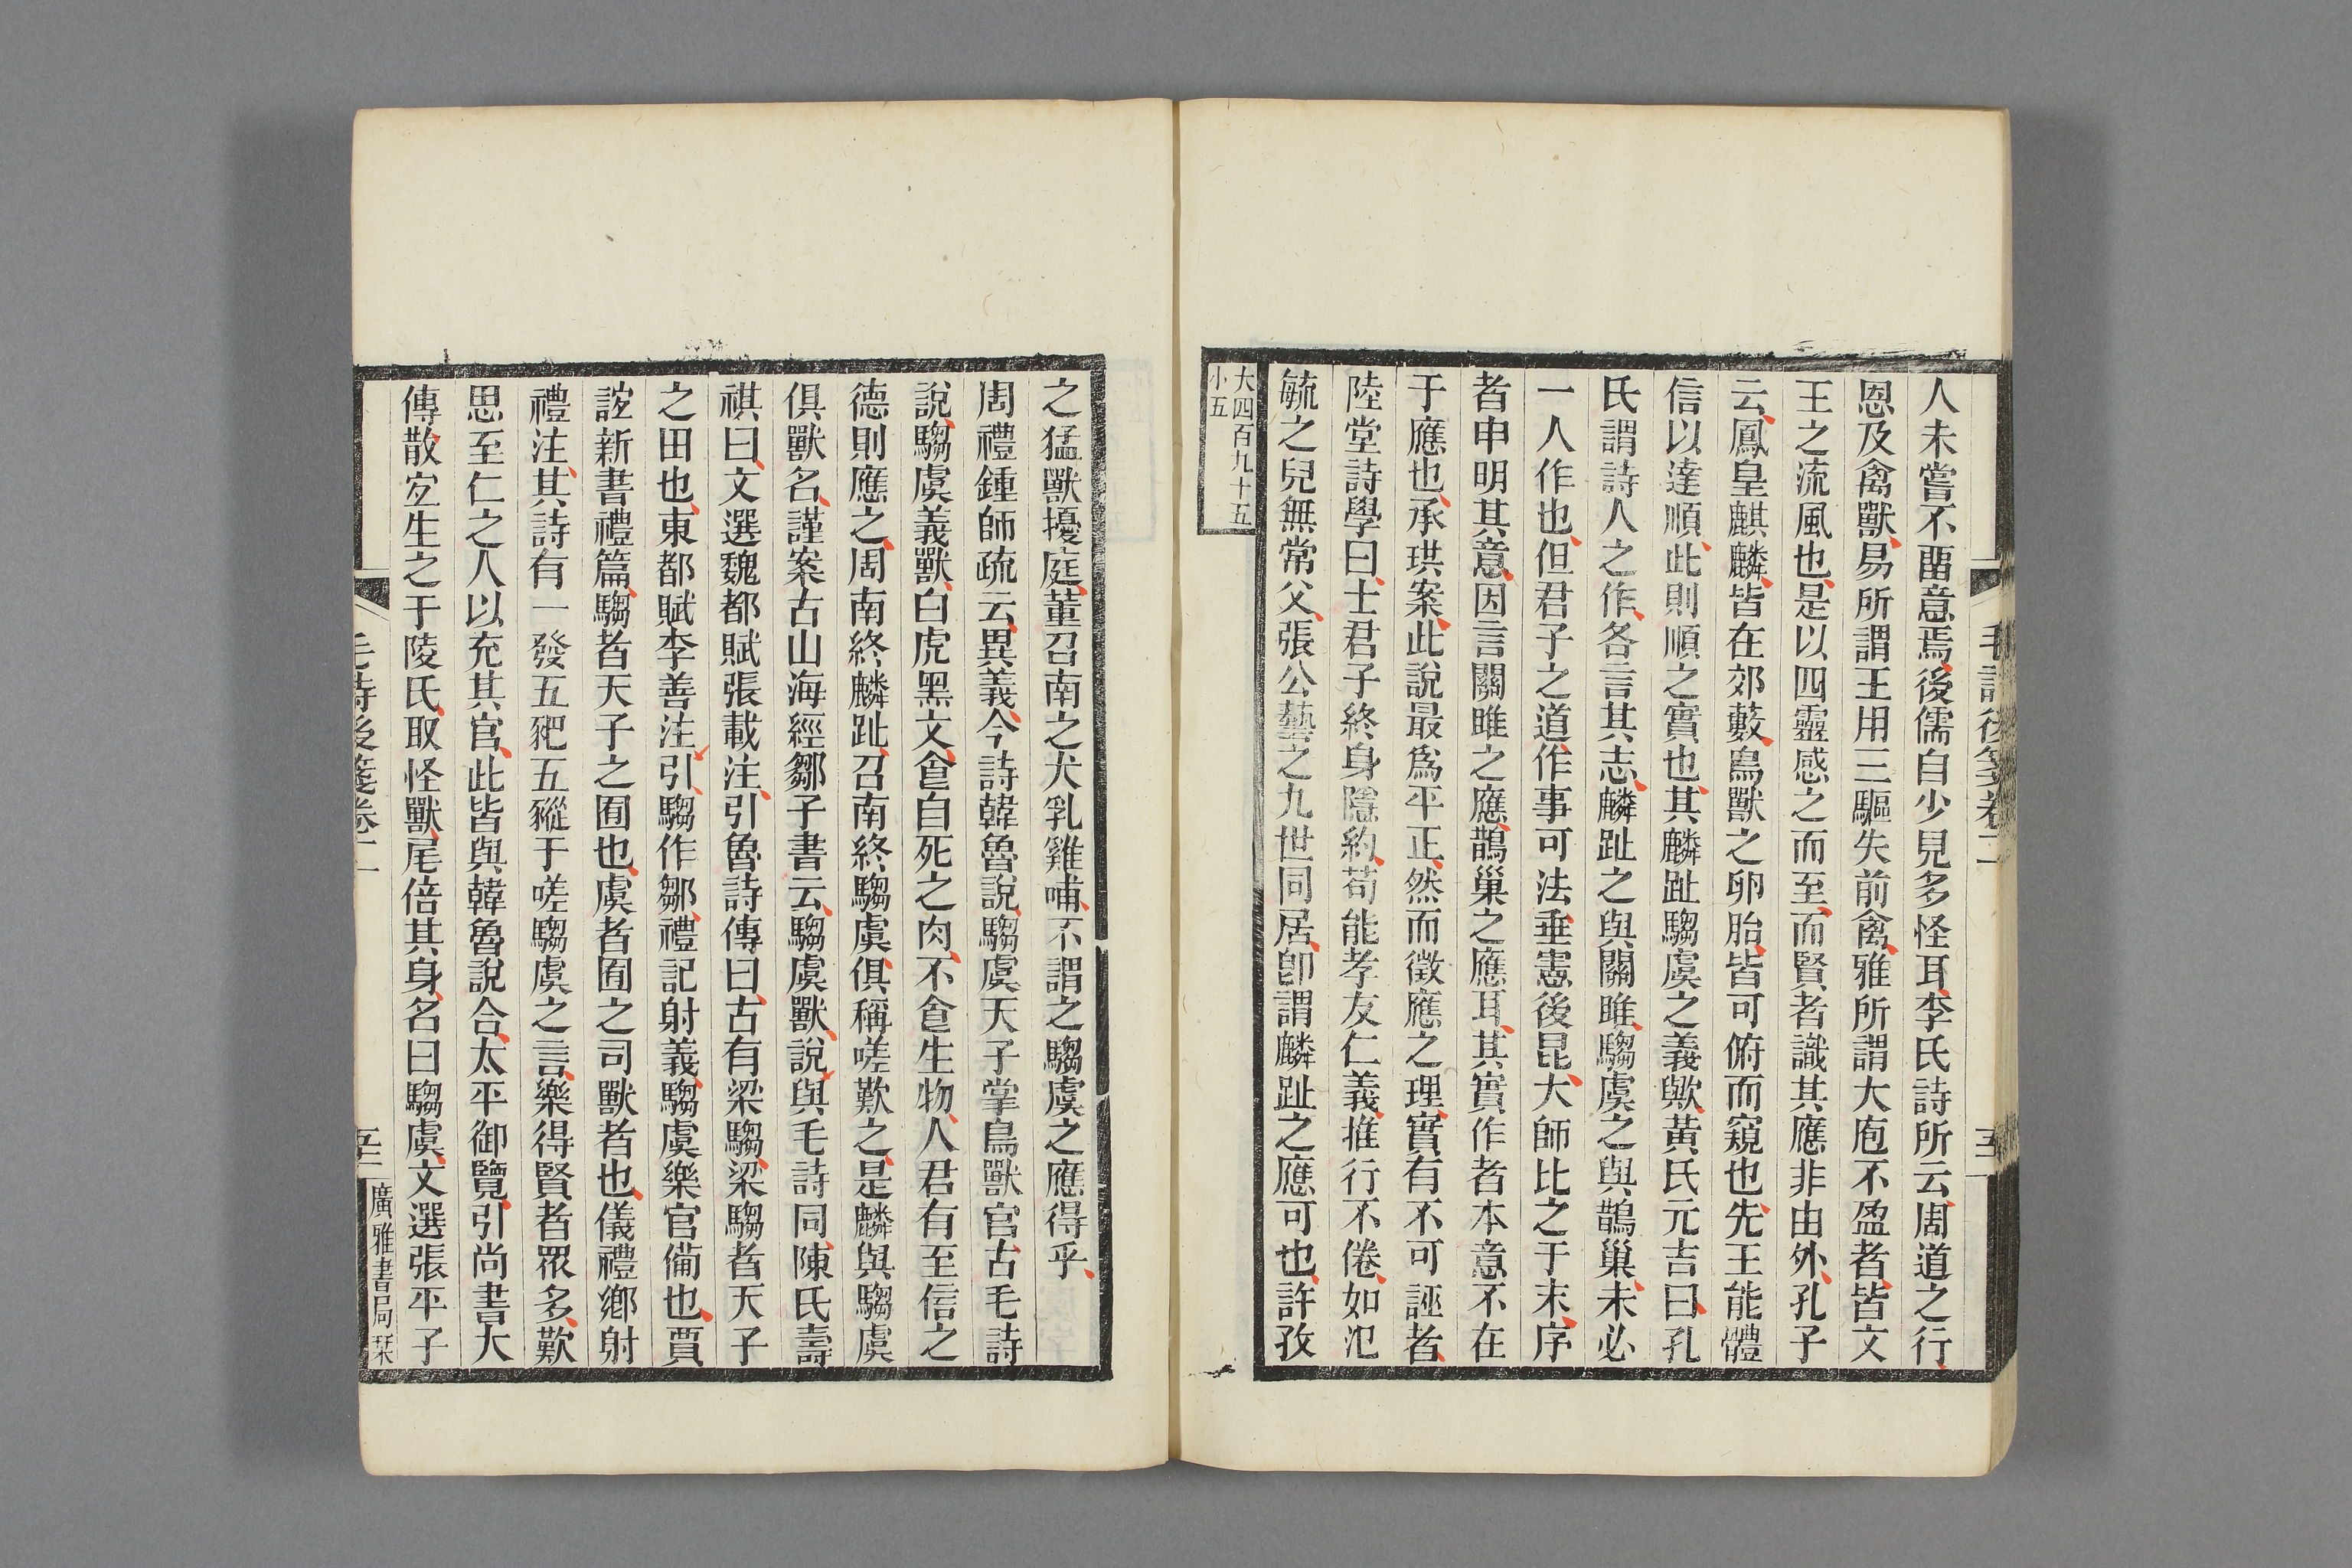 毛詩後箋卷二
五二
人未嘗不畱意焉後儒自少見多怪耳李氏詩所云周道之行
恩及禽獸易所謂王用三驅失前禽雅所謂大庖不盈者皆文
王之流風也是以四靈感之而至而賢者識其應非由外孔子
云鳳皇麒麟皆在郊藪鳥獸之卵胎皆可俯而窺也先王能體
信以達順此則順之實也其麟趾騶虞之義歟黃氏元吉曰孔
氏謂詩人之作各言其志麟趾之與關雎騶虞之與鵲巢未必
一人作也但君子之道作事可法垂憲後昆大師比之于末序
者申明其意因言關雎之應鵲巢之應耳其實作者本意不在
于應也承珙案此說最爲平正然而徵應之理實有不可誣者
陸堂詩學曰士君子終身隱約苟能孝友仁義推行不倦如氾
毓之兒無常父張公藝之九世同居卽謂麟趾之應可也許孜
大四百九十五
小五
之猛獸擾庭董召南之犬乳雞哺不謂之騶虞之應得乎
周禮鍾師疏云異義今詩韓魯說騶虞天子掌鳥獸官古毛詩
說騶虞義獸白虎黑文食自死之肉不食生物人君有至信之
德則應之周南終麟趾召南終騶虞俱稱嗟歎之是麟與騶虞
俱獸名謹案古山海經鄒子書云騶虞獸說與毛詩同陳氏壽
祺曰文選魏都賦張載注引魯詩傳曰古有梁騶梁騶者天子
之田也東都賦李善注引騶作鄒禮記射義騶虞樂官備也賈
誼新書禮篇騶者天子之囿也虞者囿之司獸者也儀禮鄉射
禮注其詩有一發五豝五豵于嗟騶虞之言樂得賢者眾多歎
思至仁之人以充其官此皆與韓魯說合太平御覽引尚書大
傳散宜生之于陵氏取怪獸尾倍其身名曰騶虞文選張平子
毛詩後箋卷二
五二
廣雅書局栞